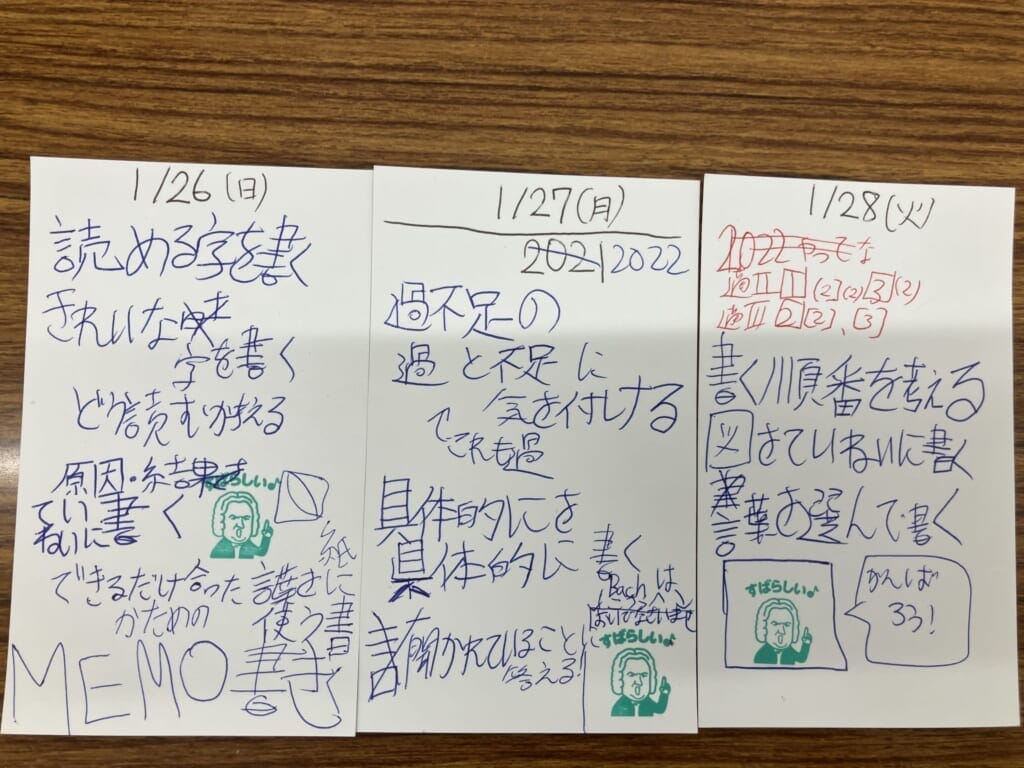 1/26(日)
読める字を書く
きれいな
字を書く
どう読むか考える
原因・結果を
すばらしい♪
ていねいに書く
できるだけ合った
かための
紙
使う
MEMO書き
1/27(月)
2021 2022
過不足の
過と不足に
気を付しける
これも過
具体的にを
具体的に
書く
Bachは、
聞かれていること
答える!
すばらしい♪
1/28(火)
2022 やってな
過II 1 (2)(2) 3 (2)
過III 2 (2)、(3)
書く順番を考える
図をていねいに書く
言葉を選んで書く
すばらしい♪
がんば
ろう!